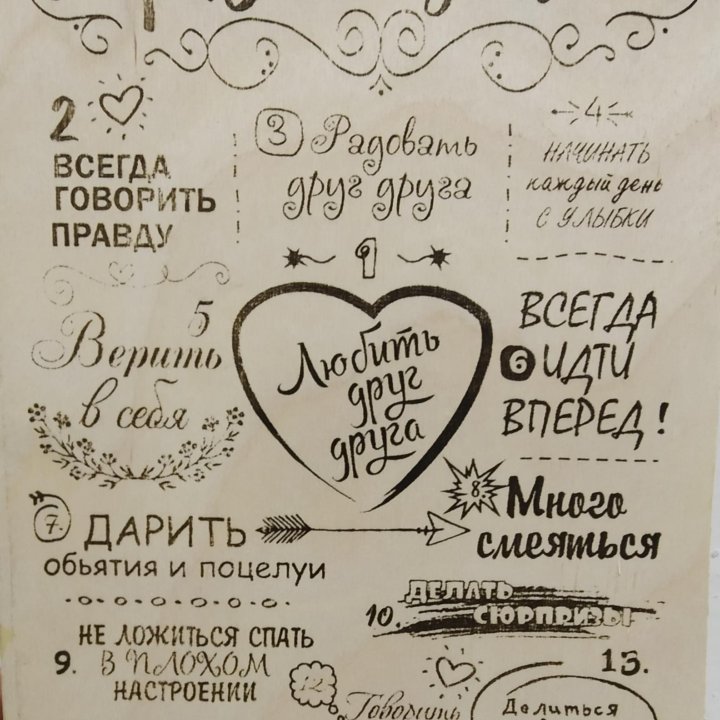 2
ВСЕГДА
ГОВОРИТЬ
ПРАВДУ
3 Радовать
друг друга
4
НАЧИНАТЬ
каждый день
С УЛЫБКИ
1
Любить
друг
друга
5
Верить
в себя
ВСЕГДА
6 ИДТИ
ВПЕРЕД!
7. ДАРИТЬ
обьятия и поцелуи
8 Много
смеяться
НЕ ЛОЖИТЬСЯ СПАТЬ
9. В ПЛОХОМ
НАСТРОЕНИИ
ДЕЛАТЬ
10. СЮРПРИЗЫ
12.
Говорить
13.
Делиться